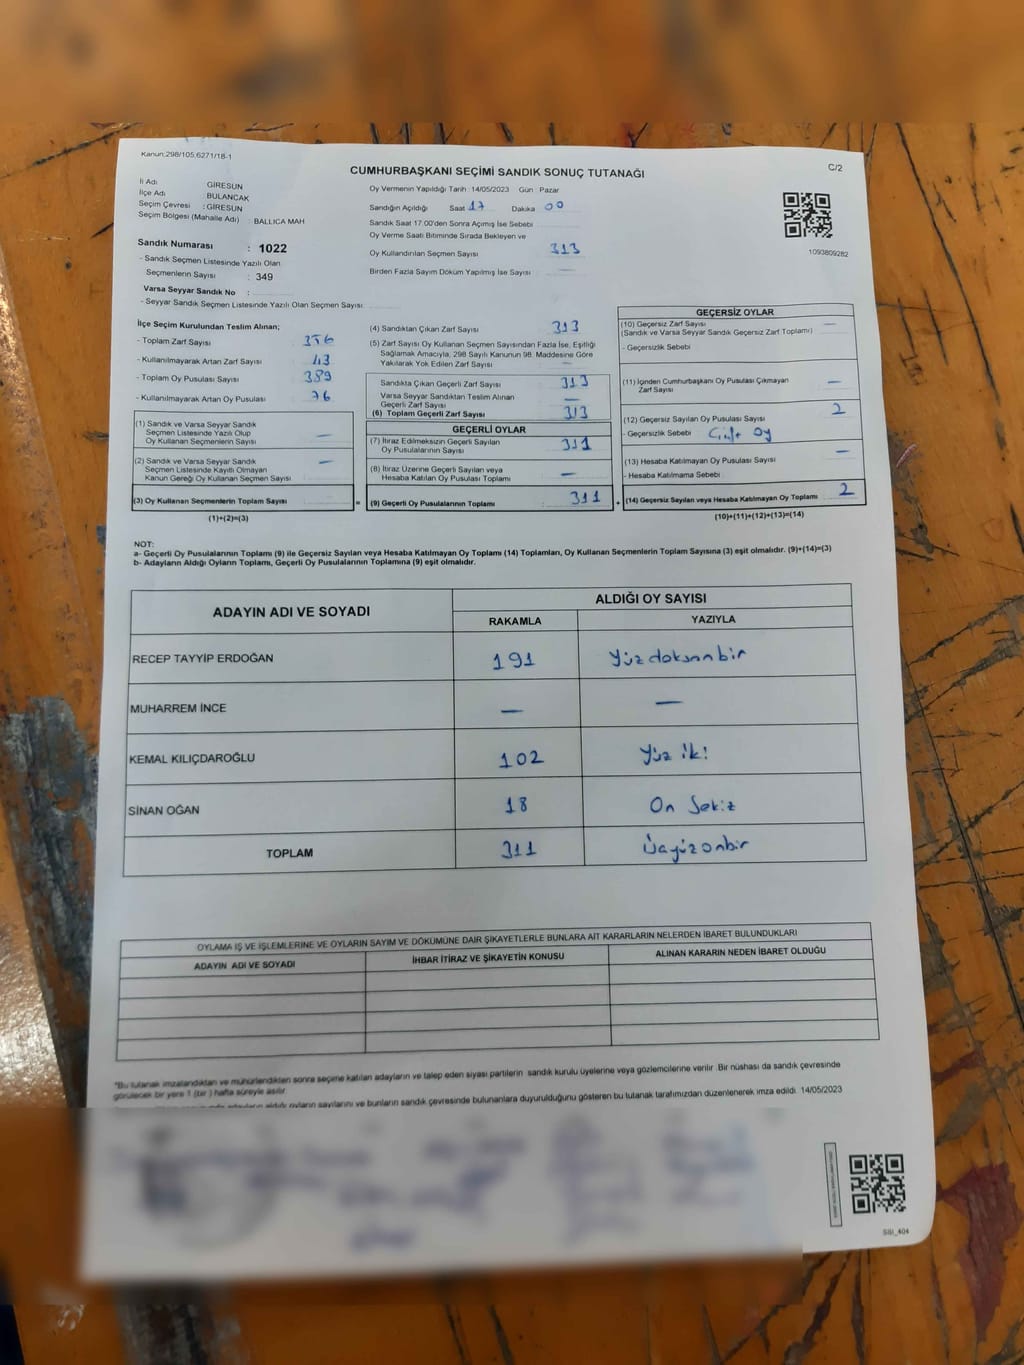 Kanun:298/105,6271/18-1
C/2
CUMHURBAŞKANI SEÇİMİ SANDIK SONUÇ TUTANAĞI
İl Adı GİRESUN
İlçe Adı : BULANCAK
Seçim Çevresi : GİRESUN
Seçim Bölgesi (Mahalle Adı) : BALLICA MAH
Sandık Numarası : 1022
- Sandık Seçmen Listesinde Yazılı Olan
Seçmenlerin Sayısı : 349
Varsa Seyyar Sandık No :
- Seyyar Sandık Seçmen Listesinde Yazılı Olan Seçmen Sayısı:
Oy Vermenin Yapıldığı Tarih :14/05/2023 Gün : Pazar
Sandığın Açıldığı Saat 17 Dakika 00
Sandık Saat 17:00'den Sonra Açımış İse Sebebi
Oy Verme Saati Bitiminde Sırada Bekleyen ve
Oy Kullandırılan Seçmen Sayısı 313
Birden Fazla Sayım Döküm Yapılmış İse Sayısı —
1093809282
İlçe Seçim Kurulundan Teslim Alınan;
- Toplam Zarf Sayısı 356
- Kullanılmayarak Artan Zarf Sayısı 43
- Toplam Oy Pusulası Sayısı 389
- Kullanılmayarak Artan Oy Pusulası 76
(1) Sandık ve Varsa Seyyar Sandık
Seçmen Listesinde Yazılı Olup
Oy Kullanan Seçmenlerin Sayısı —
(2) Sandık ve Varsa Seyyar Sandık
Seçmen Listesinde Kayıtlı Olmayan
Kanun Gereği Oy Kullanan Seçmen Sayısı —
(3) Oy Kullanan Seçmenlerin Toplam Sayısı —
(1)+(2)=(3)
=
(4) Sandıktan Çıkan Zarf Sayısı 313
(5) Zarf Sayısı Oy Kullanan Seçmen Sayısından Fazla İse, Eşitliği
Sağlamak Amacıyla, 298 Sayılı Kanunun 98. Maddesine Göre
Yakılarak Yok Edilen Zarf Sayısı —
Sandıkta Çıkan Geçerli Zarf Sayısı 313
Varsa Seyyar Sandıktan Teslim Alınan
Geçerli Zarf Sayısı —
(6) Toplam Geçerli Zarf Sayısı 313
GEÇERLİ OYLAR
(7) İtiraz Edilmeksizin Geçerli Sayılan
Oy Pusulalarının Sayısı 311
(8) İtiraz Üzerine Geçerli Sayılan veya
Hesaba Katılan Oy Pusulası Toplamı —
(9) Geçerli Oy Pusulalarının Toplamı 311
+
GEÇERSİZ OYLAR
(10) Geçersiz Zarf Sayısı —
(Sandık ve Varsa Seyyar Sandık Geçersiz Zarf Toplamı)
- Geçersizlik Sebebi
(11) İçinden Cumhurbaşkanı Oy Pusulası Çıkmayan
Zarf Sayısı —
(12) Geçersiz Sayılan Oy Pusulası Sayısı 2
- Geçersizlik Sebebi Çift Oy
(13) Hesaba Katılmayan Oy Pusulası Sayısı —
- Hesaba Katılmama Sebebi
(14) Geçersiz Sayılan veya Hesaba Katılmayan Oy Toplamı 2
(10)+(11)+(12)+(13)=(14)
NOT:
a- Geçerli Oy Pusulalarının Toplamı (9) ile Geçersiz Sayılan veya Hesaba Katılmayan Oy Toplamı (14) Toplamları, Oy Kullanan Seçmenlerin Toplam Sayısına (3) eşit olmalıdır. (9)+(14)=(3)
b- Adayların Aldığı Oyların Toplamı, Geçerli Oy Pusulalarının Toplamına (9) eşit olmalıdır.
ADAYIN ADI VE SOYADI
ALDIĞI OY SAYISI
RAKAMLA YAZIYLA
RECEP TAYYİP ERDOĞAN 191 Yüzdoksanbir
MUHARREM İNCE — —
KEMAL KILIÇDAROĞLU 102 Yüz iki
SİNAN OĞAN 18 On Sekiz
TOPLAM 311 Üçyüzonbir
OYLAMA İŞ VE İŞLEMLERİNE VE OYLARIN SAYIM VE DÖKÜMÜNE DAİR ŞİKAYETLERLE BUNLARA AİT KARARLARIN NELERDEN İBARET BULUNDUKLARI
ADAYIN ADI VE SOYADI İHBAR İTİRAZ VE ŞİKAYETİN KONUSU ALINAN KARARIN NEDEN İBARET OLDUĞU
*Bu tutanak imzalandıktan ve mühürlendikten sonra seçime katılan adayların ve talep eden siyasi partilerin sandık kurulu üyelerine veya gözlemcilerine verilir. Bir nüshası da sandık çevresinde
görülecek bir yere 1 (bir) hafta süreyle asılır.
adayların aldığı oyların sayılarını ve bunların sandık çevresinde bulunanlara duyurulduğunu gösteren bu tutanak tarafımızdan düzenlenerek imza edildi. 14/05/2023
SSI_404